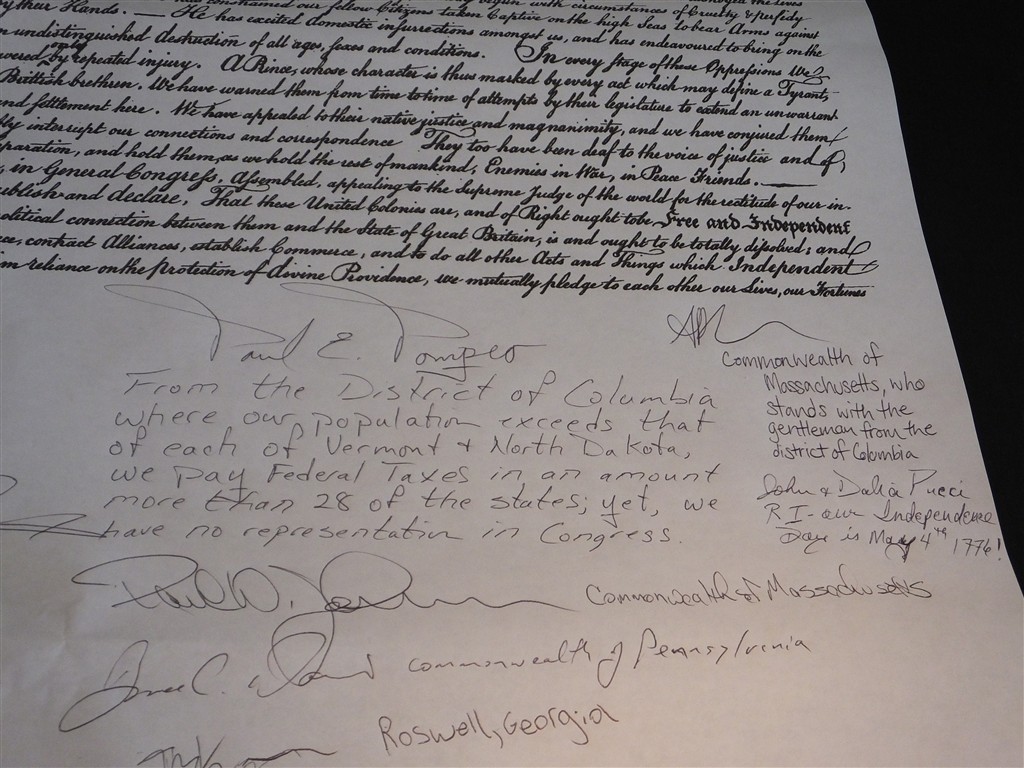 constrained our fellow Citizens taken Captive on the high Seas to bear Arms against
their Hands. — He has excited domestic insurrections amongst us, and has endeavoured to bring on the
undistinguished destruction of all ages, sexes and conditions. In every stage of these Oppressions We
only
by repeated injury. A Prince, whose character is thus marked by every act which may define a Tyrant,
Brittish brethren. We have warned them from time to time of attempts by their legislature to extend an unwarrant
and settlement here. We have appealed to their native justice and magnanimity, and we have conjured them
interrupt our connections and correspondence They too have been deaf to the voice of justice and of
and hold them, as we hold the rest of mankind, Enemies in War, in Peace Friends. —
in General Congress, Assembled, appealing to the Supreme Judge of the world for the rectitude of our in-
publish and declare, That these United Colonies are, and of Right ought to be Free and Independent
political connection between them and the State of Great Britain, is and ought to be totally dissolved; and
contract Alliances, establish Commerce, and to do all other Acts and Things which Independent
reliance on the protection of divine Providence, we mutually pledge to each other our Lives, our Fortunes
Paul E. Pompeo
From the District of Columbia
where our population exceeds that
of each of Vermont + North Dakota,
we pay Federal Taxes in an amount
more than 28 of the states; yet, we
have no representation in Congress.
Commonwealth of
Massachusetts, who
stands with the
gentleman from the
district of Columbia
John & Dalia Pucci
RI - our Independence
Day is May 4th 1776!
Commonwealth of Massachusetts
commonwealth of Pennsylvania
Roswell, Georgia